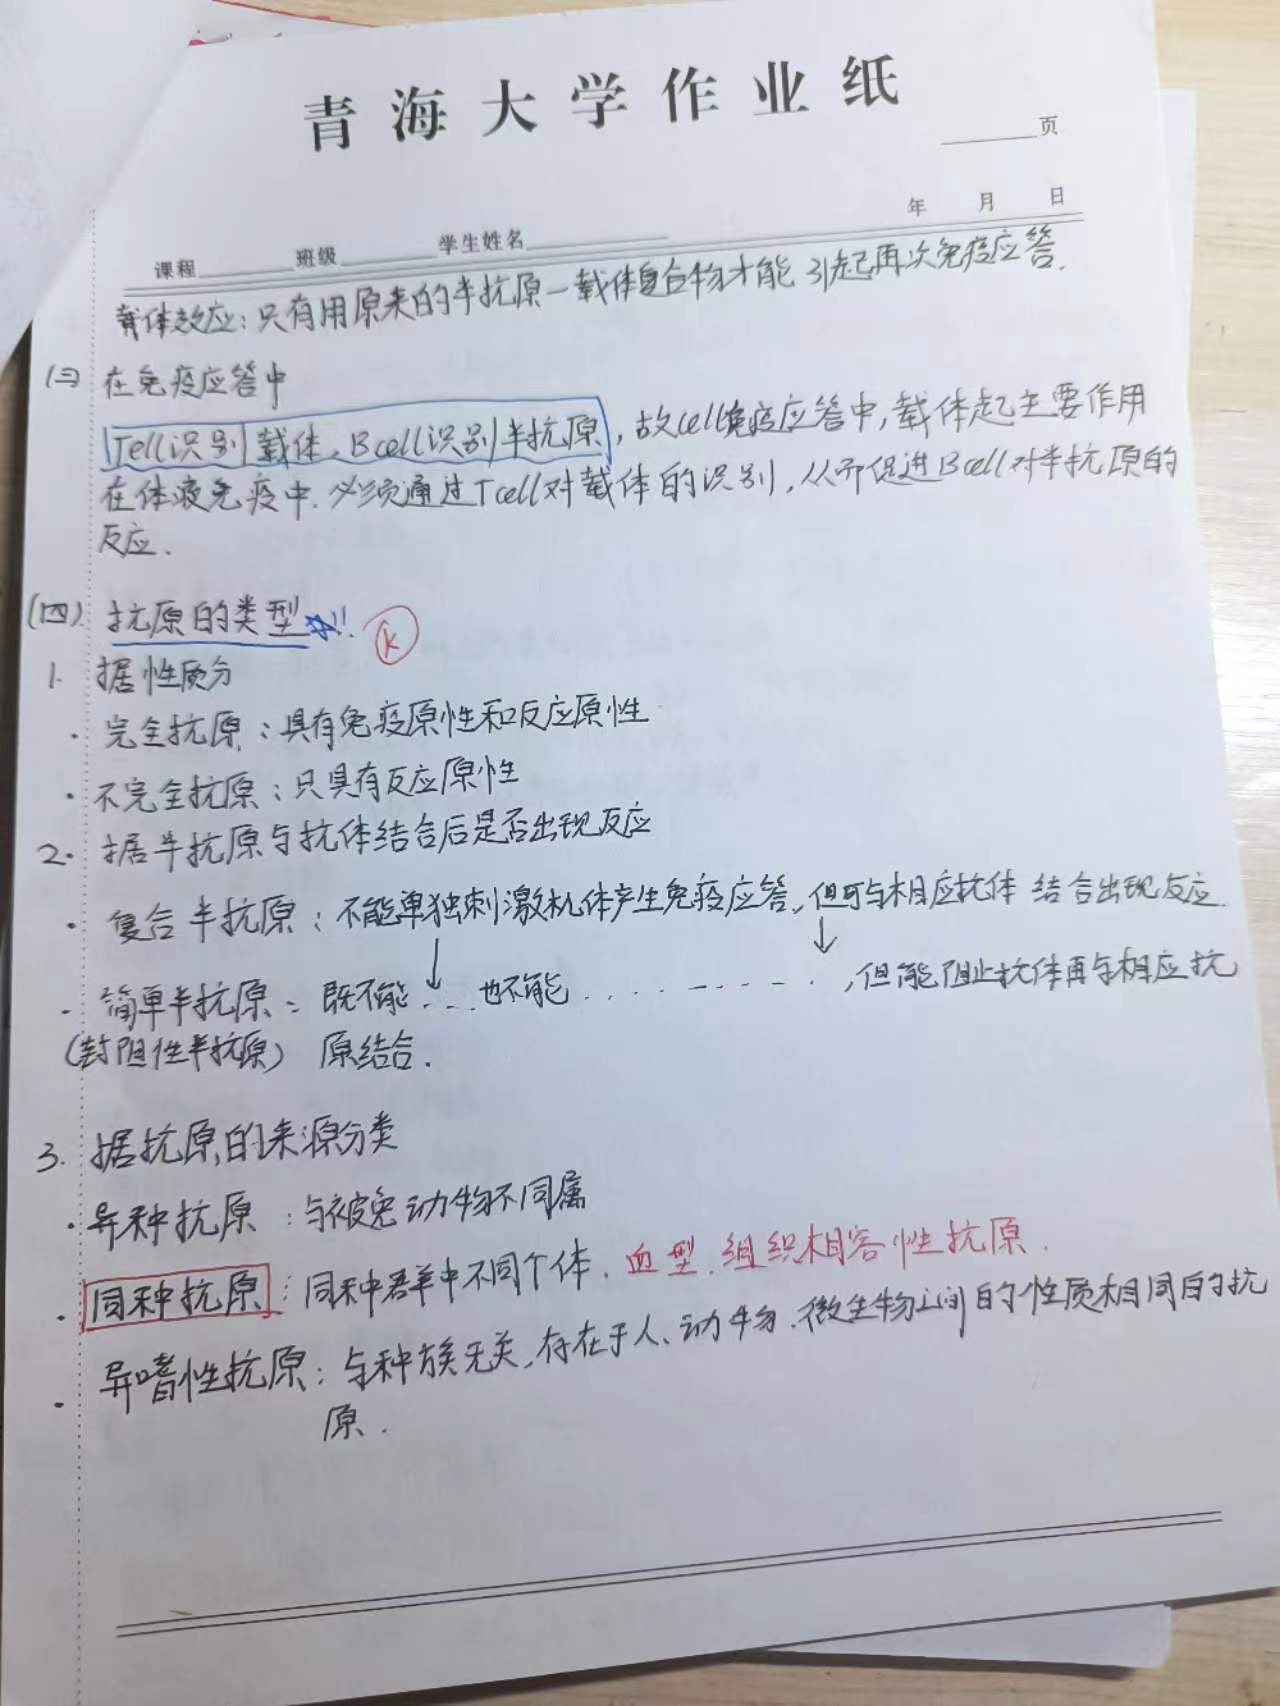 青海大学作业纸
页
年 月 日
课程 班级 学生姓名
载体效应：只有用原来的半抗原-载体复合物才能引起再次免疫应答.
(三) 在免疫应答中
Tcell识别载体、Bcell识别半抗原，故cell免疫应答中，载体起主要作用
在体液免疫中.必须通过Tcell对载体的识别，从而促进Bcell对半抗原的
反应.
(四) 抗原的类型☆!! K
1. 据性质分
· 完全抗原：具有免疫原性和反应原性
· 不完全抗原：只具有反应原性
2. 据半抗原与抗体结合后是否出现反应
· 复合半抗原：不能单独刺激机体产生免疫应答，但可与相应抗体结合出现反应.
↓ ↓
· 简单半抗原：既不能... 也不能..........，但能阻止抗体再与相应抗
(封阻性半抗原) 原结合.
3. 据抗原的来源分类
· 异种抗原：与被免动物不同属
· 同种抗原：同种群中不同个体. 血型.组织相容性抗原.
· 异嗜性抗原：与种族无关，存在于人、动物.微生物之间的性质相同的抗
原.